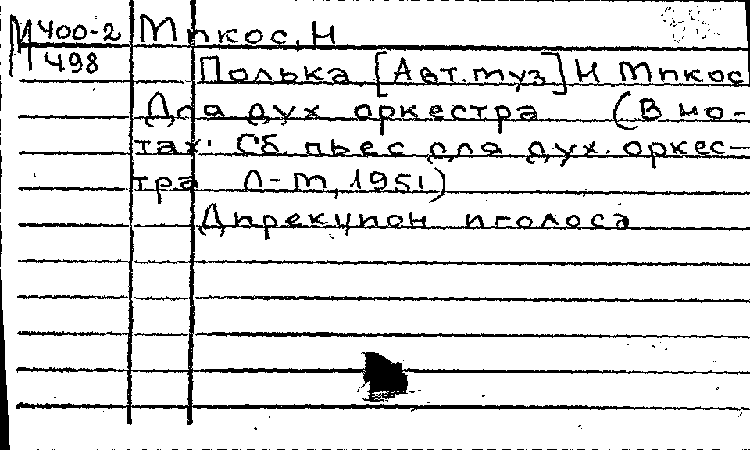 М 400-2 Микос, Н
498 Полька [Авт. муз] Н Микос
Для дух оркестра (В но-
тах: Сб пьес для дух. оркес-
тра Л-М, 1951)
Дирекцион и голоса